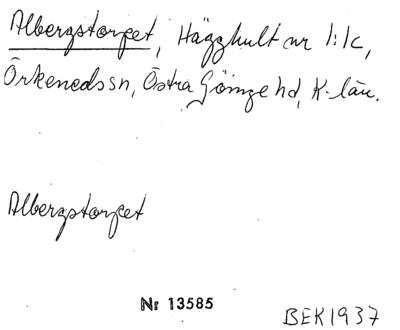 Albergstorpet, Hägghult nr 1:1c,
Örkeneds sn, Östra Göinge hd, K-län.
Albergstorpet
Nr 13585
BEK 1937